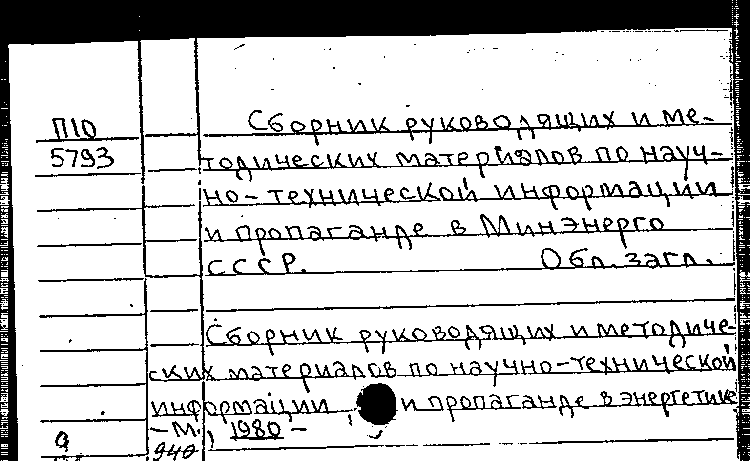 П10
5793
Сборник руководящих и ме-
тодических материалов по науч-
но-технической информации
и пропаганде в Минэнерго
СССР. Обл. загл.
Сборник руководящих и методиче-
ских материалов по научно-технической
информации, и пропаганде в энергетике
- М., 1980 -
940